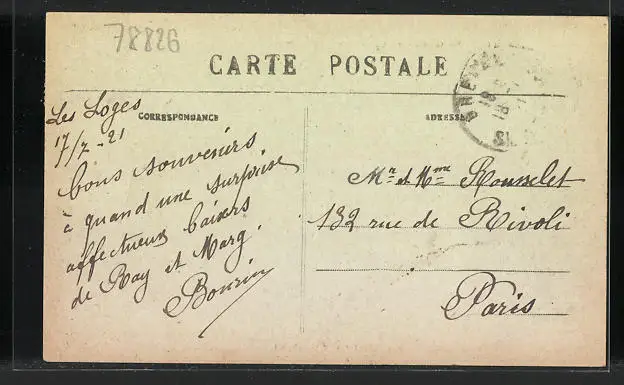 78826
CARTE POSTALE
CORRESPONDANCE
ADRESSE
Les Loges
17/7-21
bons souvenirs
à quand une surprise
affectueux baisers
de Ray et Marg.
Mr et Mme Rousselet
132 rue de Rivoli
Paris